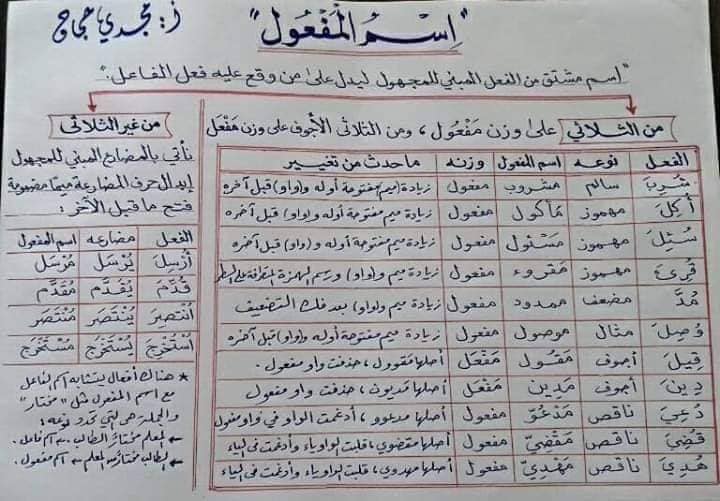 أ: مجدي حجاج
"اِسْمُ المَفْعُول"
"اسم مشتق من الفعل المبني للمجهول ليدل على من وقع عليه فعل الفاعل."
من الثلاثي على وزن مَفْعُول، ومن الثلاثي الأجوف على وزن مَفْعَل
الفعل نوعه اسم المفعول وزنه ما حدث من تغيير
شُرِبَ سالم مشروب مفعول زيادة (ميم) مفتوحة أوله و(واو) قبل آخره
أُكِلَ مهموز مأكول مفعول زيادة ميم مفتوحة أوله و(واو) قبل آخره
سُئِلَ مهموز مَسْئول مفعول زيادة ميم مفتوحة أوله و(واو) قبل آخره
قُرِئَ مهموز مَقْروء مفعول زيادة ميم و(واو) ورسم الهمزة المتطرفة على السطر
مُدَّ مضعف ممدود مفعول زيادة ميم و(واو) بعد فك التضعيف
وُصِلَ مثال موصول مفعول زيادة ميم مفتوحة أوله و(واو) قبل آخره
قِيلَ أجوف مَقُول مَفْعَل أصلها مَقْوول، حذفت واو مفعول.
دِينَ أجوف مَدِين مَفْعَل أصلها مَديون، حذفت واو مفعول
دُعِيَ ناقص مَدْعُوّ مفعول أصلها مدعوو، أدغمت الواو في واو مفعول
قُضِيَ ناقص مَقْضِيّ مفعول أصلها مقضوي، قلبت الواو ياء وأدغمت في الياء
هُدِيَ ناقص مَهْدِيّ مفعول أصلها مهدوي، قلبت الواو ياء وأدغمت في الياء
من غير الثلاثى
نأتي بالمضارع المبني للمجهول
إبدال حرف المضارعة ميمًا مضمومة
فتح ما قبل الآخر:
الفعل مضارعه اسم المفعول
أُرْسِلَ يُرْسَل مُرْسَل
قُدِّمَ يُقَدَّم مُقَدَّم
انْتُصِرَ يُنْتَصَر مُنْتَصَر
اسْتُخْرِجَ يُسْتَخْرَج مُسْتَخْرَج
* هناك أفعال يتشابه اسم الفاعل
مع اسم المفعول مثل "مختار"
والجملة هي التي تحدد نوعه:
المعلم مختارٌ الطالب ← اسم فاعل.
الطالب مختار من المعلم ← اسم مفعول.